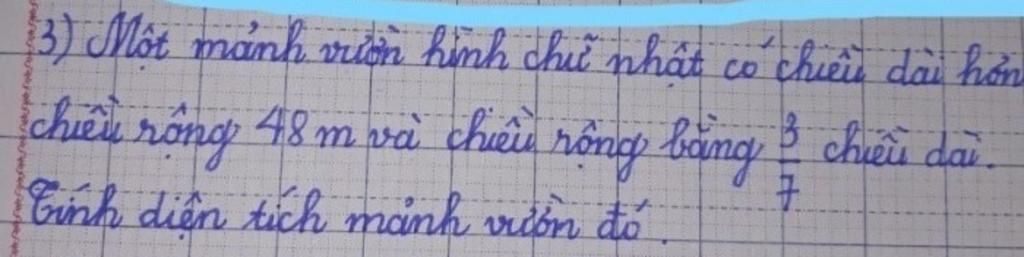 3) Một mảnh vườn hình chữ nhật có chiều dài hơn
chiều rộng 48 m và chiều rộng bằng 3/7 chiều dài.
Tính diện tích mảnh vườn đó.